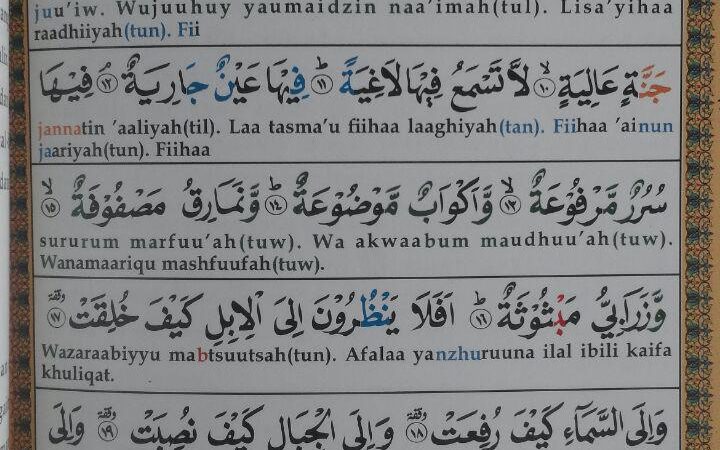 juu'iw. Wujuuhuy yaumaidzin naa'imah(tul). Lisa'yihaa
raadhiiyah(tun). Fii
جَنَّةٍ عَالِيَةٍۙ ١٠ لَّا تَسْمَعُ فِيْهَا لَاغِيَةًۗ ١١ فِيْهَا عَيْنٌ جَارِيَةٌۘ ١٢ فِيْهَا
jannatin 'aaliyah(til). Laa tasma'u fiihaa laaghiyah(tan). Fiihaa 'ainun
jaariyah(tun). Fiihaa
سُرُرٌ مَّرْفُوْعَةٌۙ ١٣ وَّاَكْوَابٌ مَّوْضُوْعَةٌۙ ١٤ وَّنَمَارِقُ مَصْفُوْفَةٌۙ ١٥
sururum marfuu'ah(tuw). Wa akwaabum maudhuu'ah(tuw).
Wanamaariqu mashfuufah(tuw).
وَّزَرَابِيُّ مَبْثُوْثَةٌۗ ١٦ اَفَلَا يَنْظُرُوْنَ اِلَى الْاِبِلِ كَيْفَ خُلِقَتْۗ ١٧
Wazaraabiyyu mabtsuutsah(tun). Afalaa yanzhuruuna ilal ibili kaifa
khuliqat.
وَاِلَى السَّمَاۤءِ كَيْفَ رُفِعَتْۗ ١٨ وَاِلَى الْجِبَالِ كَيْفَ نُصِبَتْۗ ١٩ وَاِلَى